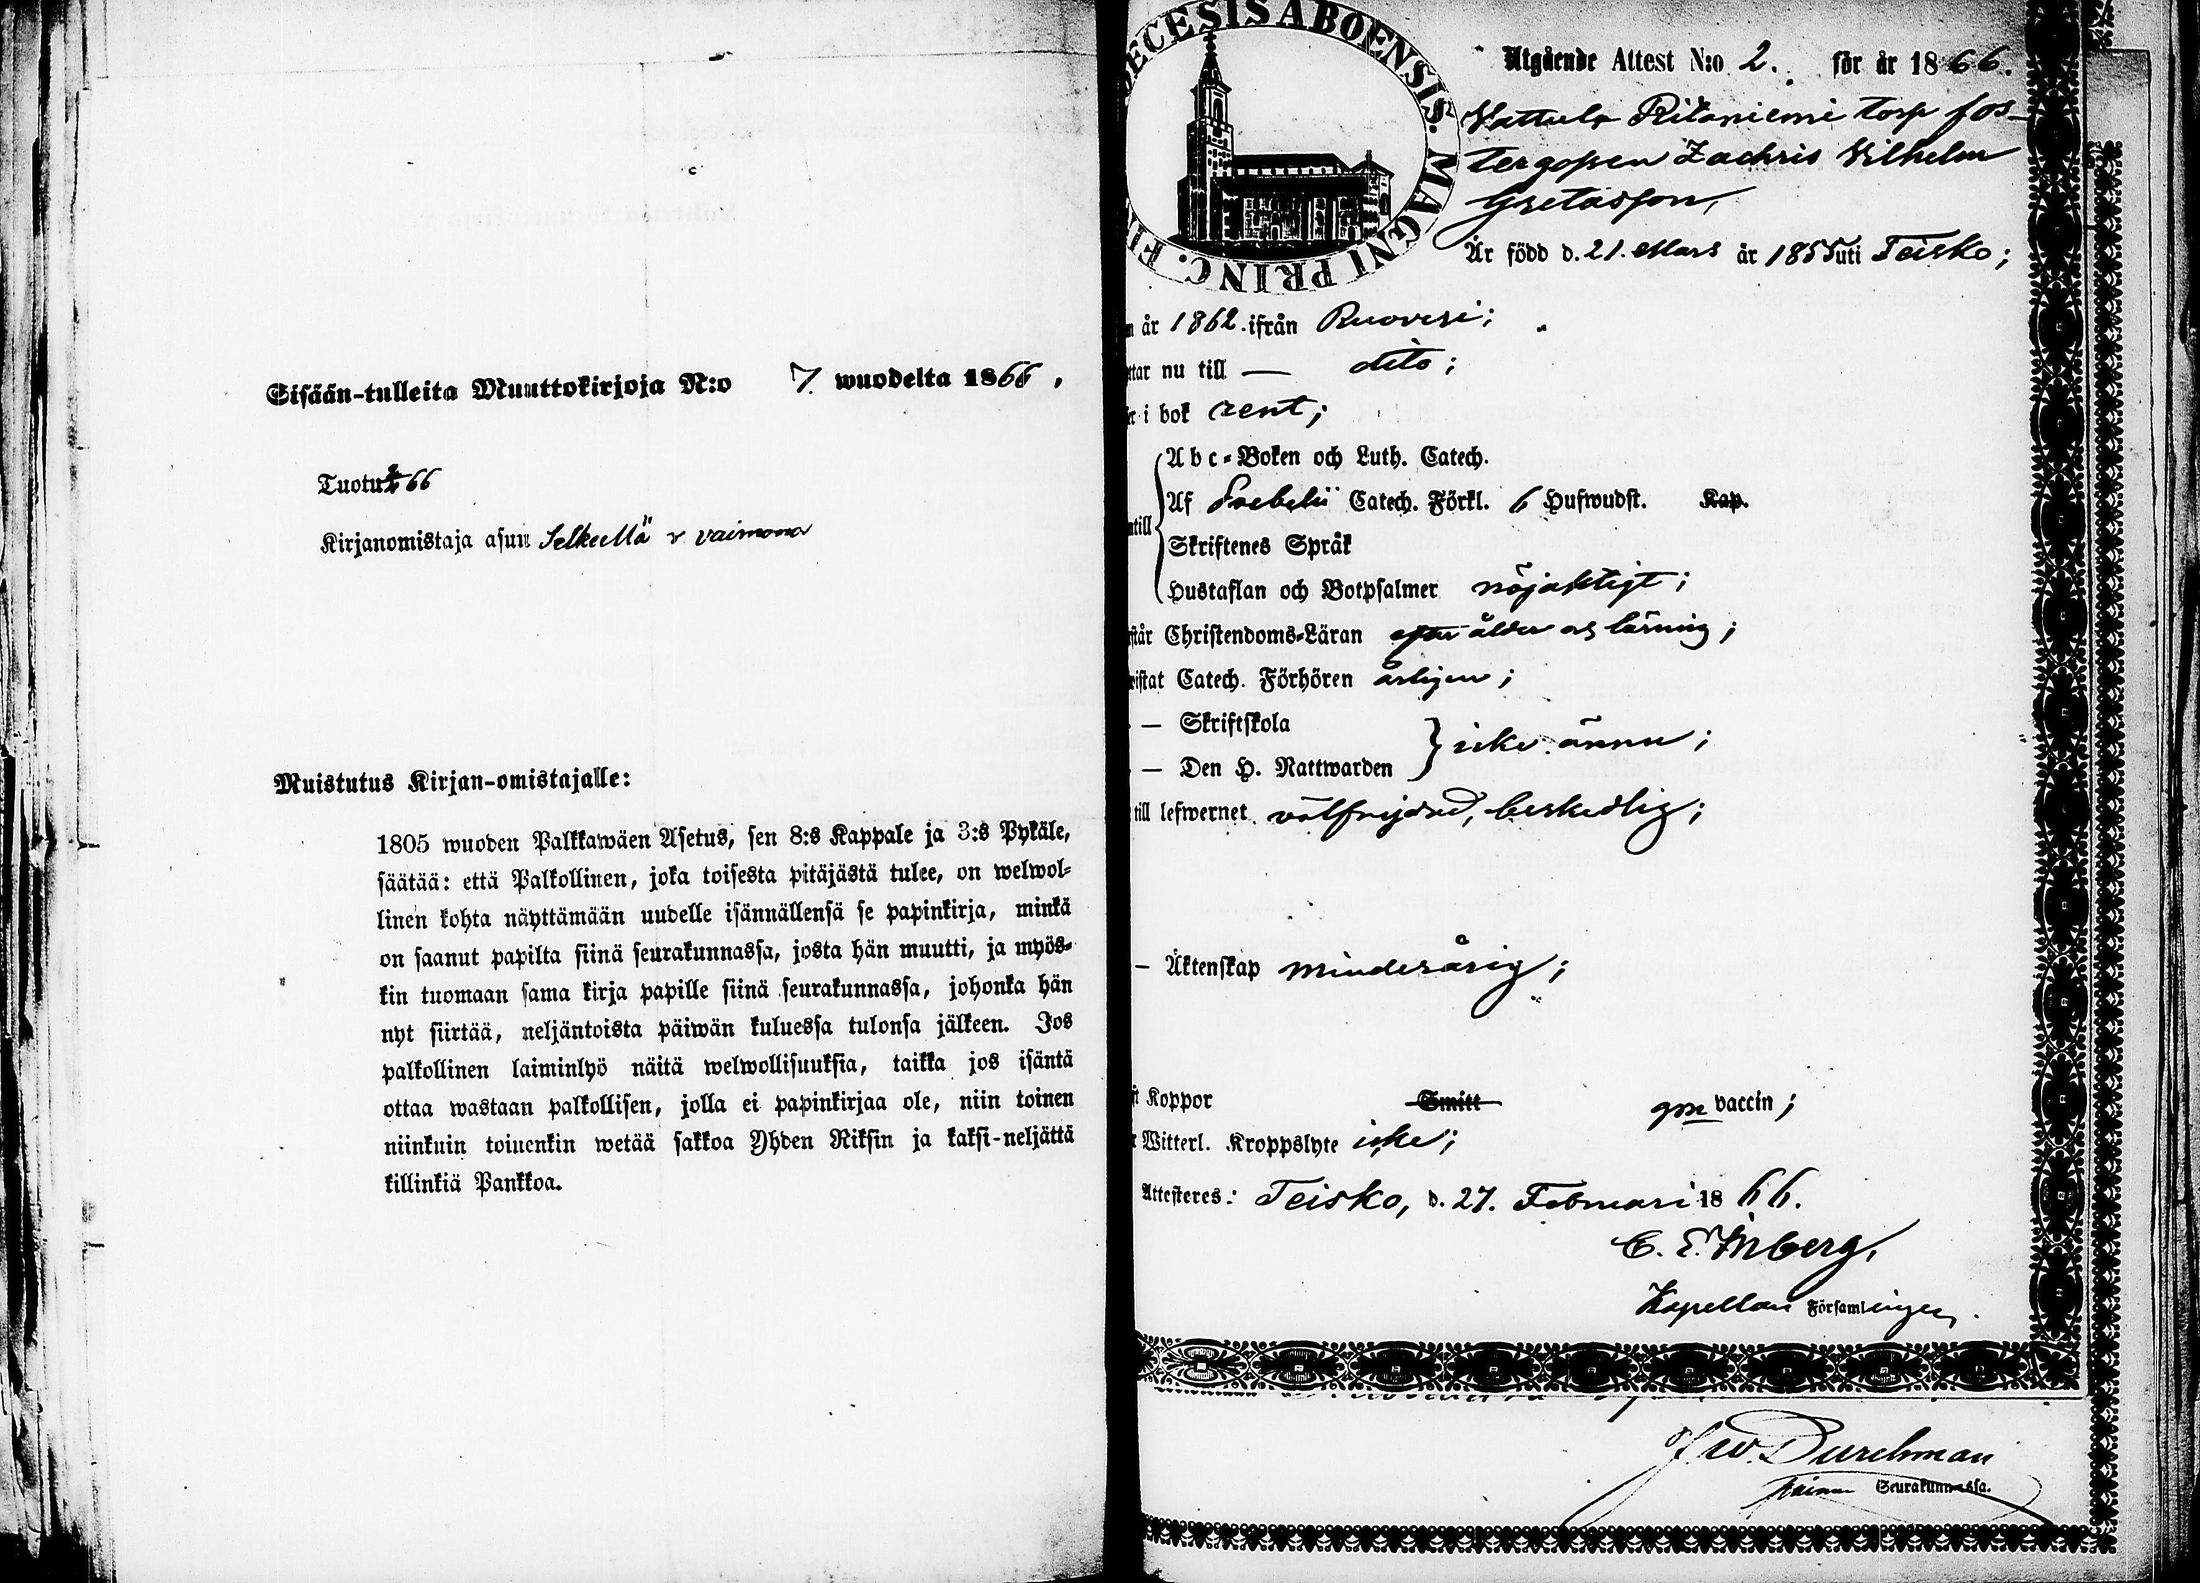 Sisään-tulleita Muuttokirjoja N:o 7. wuodelta 1866.
Tuotu 66
Kirjanomistaja asuu Selkeellä vaimona
Muistutus Kirjan-omistajalle:
1805 wuoden Palkkawäen Asetus, sen 8:s Kappale ja 3:s Pykäle,
säätää: että Palkollinen, joka toisesta pitäjästä tulee, on welwol-
linen kohta näyttämään uudelle isännällensä se papinkirja, minkä
on saanut papilta siinä seurakunnassa, josta hän muutti, ja myös-
kin tuomaan sama kirja papille siinä seurakunnassa, johonka hän
nyt siirtää, neljäntoista päiwän kuluessa tulonsa jälkeen. Jos
palkollinen laiminlyö näitä welwollisuuksia, taikka jos isäntä
ottaa wastaan palkollisen, jolla ei papinkirjaa ole, niin toinen
niinkuin toinenkin wetää sakkoa Yhden Riksin ja kaksi-neljättä
killinkiä Pankkoa.
ECESIS ABOENSIS. MAGNI PRINC. FI
Utgående Attest N:o 2. för år 1866.
Vattula Ritaniemi torp fos-
tergossen Zachris Vilhelm
Gretasson,
Är född d. 21. Mars år 1855 uti Teisko;
år 1862. ifrån Ruovesi;
ttar nu till — dito;
i bok rent;
Abc-Boken och Luth. Catech.
Af Svebelii Catech. Förkl. 6 Hufwudst. Kap.
till
Skriftenes Språk
Hustaflan och Botpsalmer nöjaktigt;
står Christendoms-Läran efter ålder och lärning;
wistat Catech. Förhören årligen;
— Skriftskola
icke ännu;
— Den H. Nattwarden
till lefwernet välfrejdad, beskedlig;
— Äktenskap minderårig;
t Koppor Smitt gm vaccin;
Witterl. Kroppslyte icke;
Attesteres: Teisko, d. 27. Februari 1866.
C. E. Inberg,
Kapellan Församlingen.
J W. Durchman
Seurakunnassa.